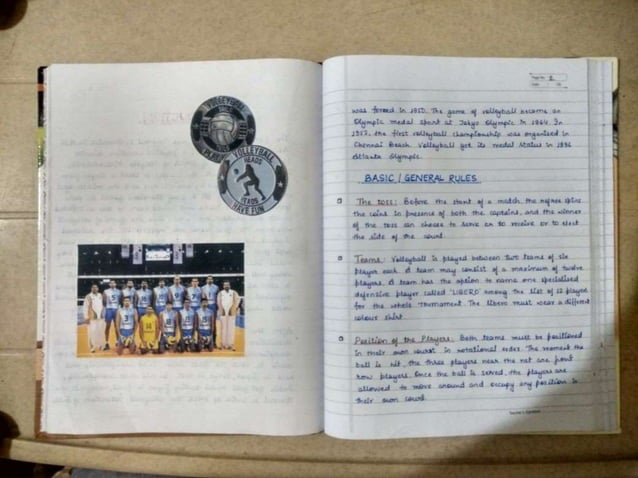 VOLLEYBALL
VOLLEYBALL
HEADS
ITADS
HAVE FUN
Page No. 2
Date
was formed in 1950. The game of volleyball became an
Olympic medal sport at Tokyo Olympic in 1964. In
the first volleyball championship was organised in
Chennai Beach. Volleyball got its medal status in 1996
Atlanta Olympic.
BASIC / GENERAL RULES
The toss: Before the start of a match the refree spins
the coin in presence of both the captains, and the winner
of the toss can choose to serve or to receive or to elect
the side of the court.
Teams: Volleyball is played between two teams of six
players each. A team may consist of a maximum of twelve
players. A team has the option to name one specialised
defensive player called 'LIBERO' among the list of 12 players
for the whole tournament. The libero must wear a different
colour shirt.
Position of the Players: Both teams must be positioned
in their own court in rotational order. The moment the
ball is hit, the three players near the net are front
row players. Once the ball is served, the players are
allowed to move around and occupy any position in
their own court.
Teacher's Signature